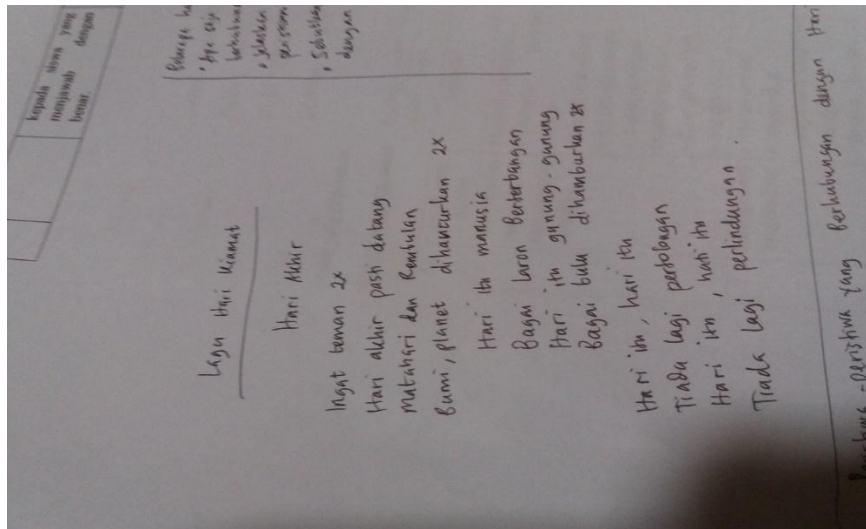 kepada siswa yang
menjawab dengan
benar.
Beberapa
• Apa saja
• Jelaskan
• Sebutkan
dengan
Lagu Hari Kiamat
Hari Akhir
Ingat teman 2x
Hari akhir pasti datang
Matahari dan Rembulan
Bumi, planet dihancurkan 2x
Hari itu manusia
Bagai laron Berterbangan
Hari itu gunung-gunung
Bagai bulu dihamburkan 2x
Hari itu, hari itu
Tiada lagi pertolongan
Hari itu, hari itu
Tiada lagi perlindungan.
Peristiwa-Peristiwa yang Berhubungan dengan Hari